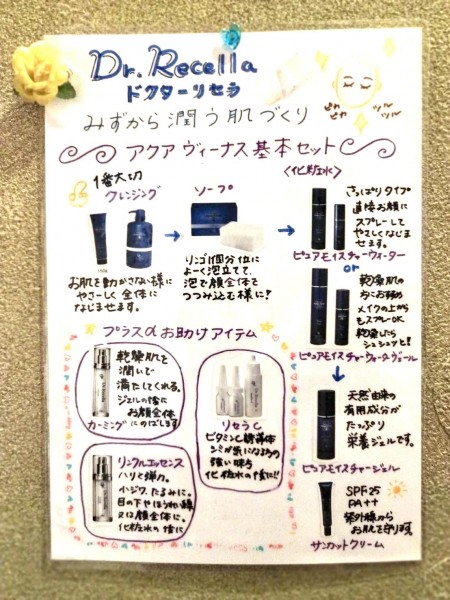 Dr. Recella
ドクターリセラ
みずから潤う肌づくり
ピカ
ピカ
ツル
ツル
アクアヴィーナス基本セット
1番大切
クレンジング
お肌を動かさない様に
やさしく全体に
なじませます。
ソープ
リンゴ1個分位に
よーく泡立てて、
泡で顔全体を
つつみ込む様に!
<化粧水>
さっぱりタイプ
直接お顔に
スプレーして
やさしくなじま
せます。
ピュアモイスチャーウォーター
or
乾燥肌の
方にお勧め
メイクの上から
もスプレーOK
乾燥したら
シュシュッと!
ピュアモイスチャーウォーターヴェール
天然由来の
有用成分が
たっぷり
栄養ジェルです。
ピュアモイスチャージェル
SPF25
PA++
紫外線から
お肌を守ります。
サンカットクリーム
プラスαお助けアイテム
乾燥肌を
潤いで
満たしてくれる。
ジェルの後に
お顔全体
にのばします
カーミング
リセラC
ビタミンC誘導体
シミが気になる方の
強い味方
化粧水の後に!!
リンクルエッセンス
ハリと弾力。
小ジワ、たるみに。
目の下やほうれい線
又は顔全体に。
化粧水の後に